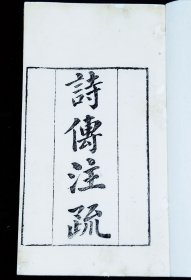 詩傳注疏